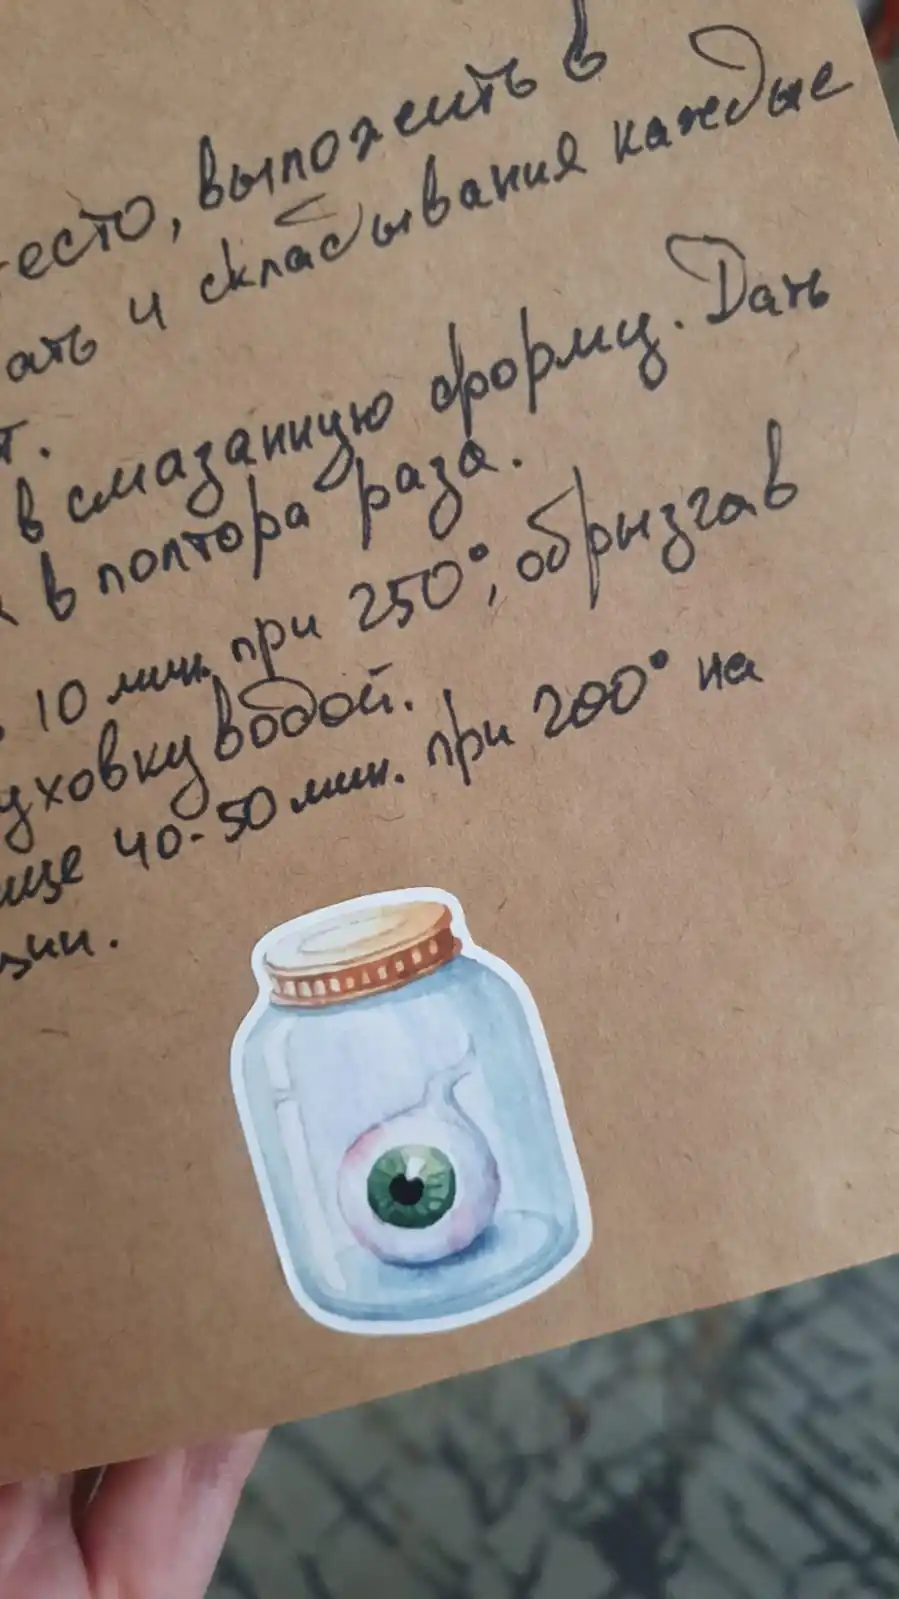 есто, выложить в
ать и складывания каждые
т.
в смазанную форму. Дать
в полтора раза.
10 мин. при 250°, обрызгав
уховку водой.
ище 40-50 мин. при 200° на
ции.